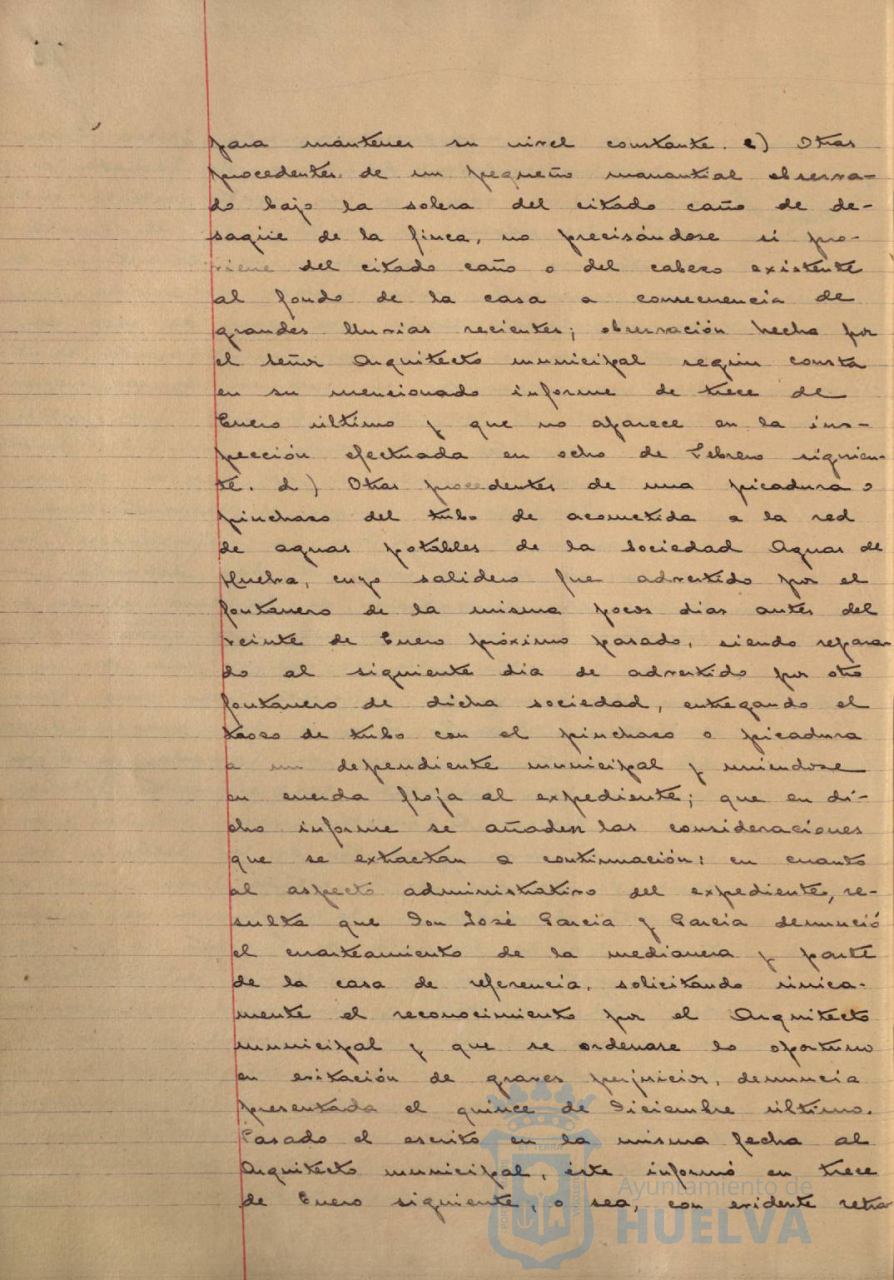 para mantener su nivel constante. c) Otras
procedentes de un pequeño manantial observa-
do bajo la solera del citado caño de de-
sagüe de la finca, no precisándose si pro-
viene del citado caño o del cabezo existente
al fondo de la casa a consecuencia de
grandes lluvias recientes; observación hecha por
el Señor Arquitecto municipal según consta
en su mencionado informe de trece de
Enero último y que no aparece en la ins-
pección efectuada en ocho de Febrero siguien-
te. d) Otras procedentes de una picadura o
pinchazo del tubo de acometida a la red
de aguas potables de la Sociedad Aguas de
Huelva, cuyo salidero fue advertido por el
fontanero de la misma pocos dias antes del
veinte de Enero próximo pasado, siendo repara-
do al siguiente dia de advertido por otro
fontanero de dicha sociedad, entregando el
trozo de tubo con el pinchazo o picadura
a un dependiente municipal y uniendose
en cuerda floja al expediente; que en di-
cho informe se añaden las consideraciones
que se extractan a continuación: en cuanto
al aspecto administrativo del expediente, re-
sulta que Don José Garcia y Garcia denunció
el cuarteamiento de la medianera y parte
de la casa de referencia, solicitando única-
mente el reconocimiento por el Arquitecto
municipal y que se ordenase lo oportuno
en evitación de graves perjuicios, denuncia
presentada el quince de Diciembre último.
Pasado el escrito en la misma fecha al
Arquitecto municipal, éste informó en trece
de Enero siguiente, o sea, con evidente retra
Ayuntamiento de
HUELVA